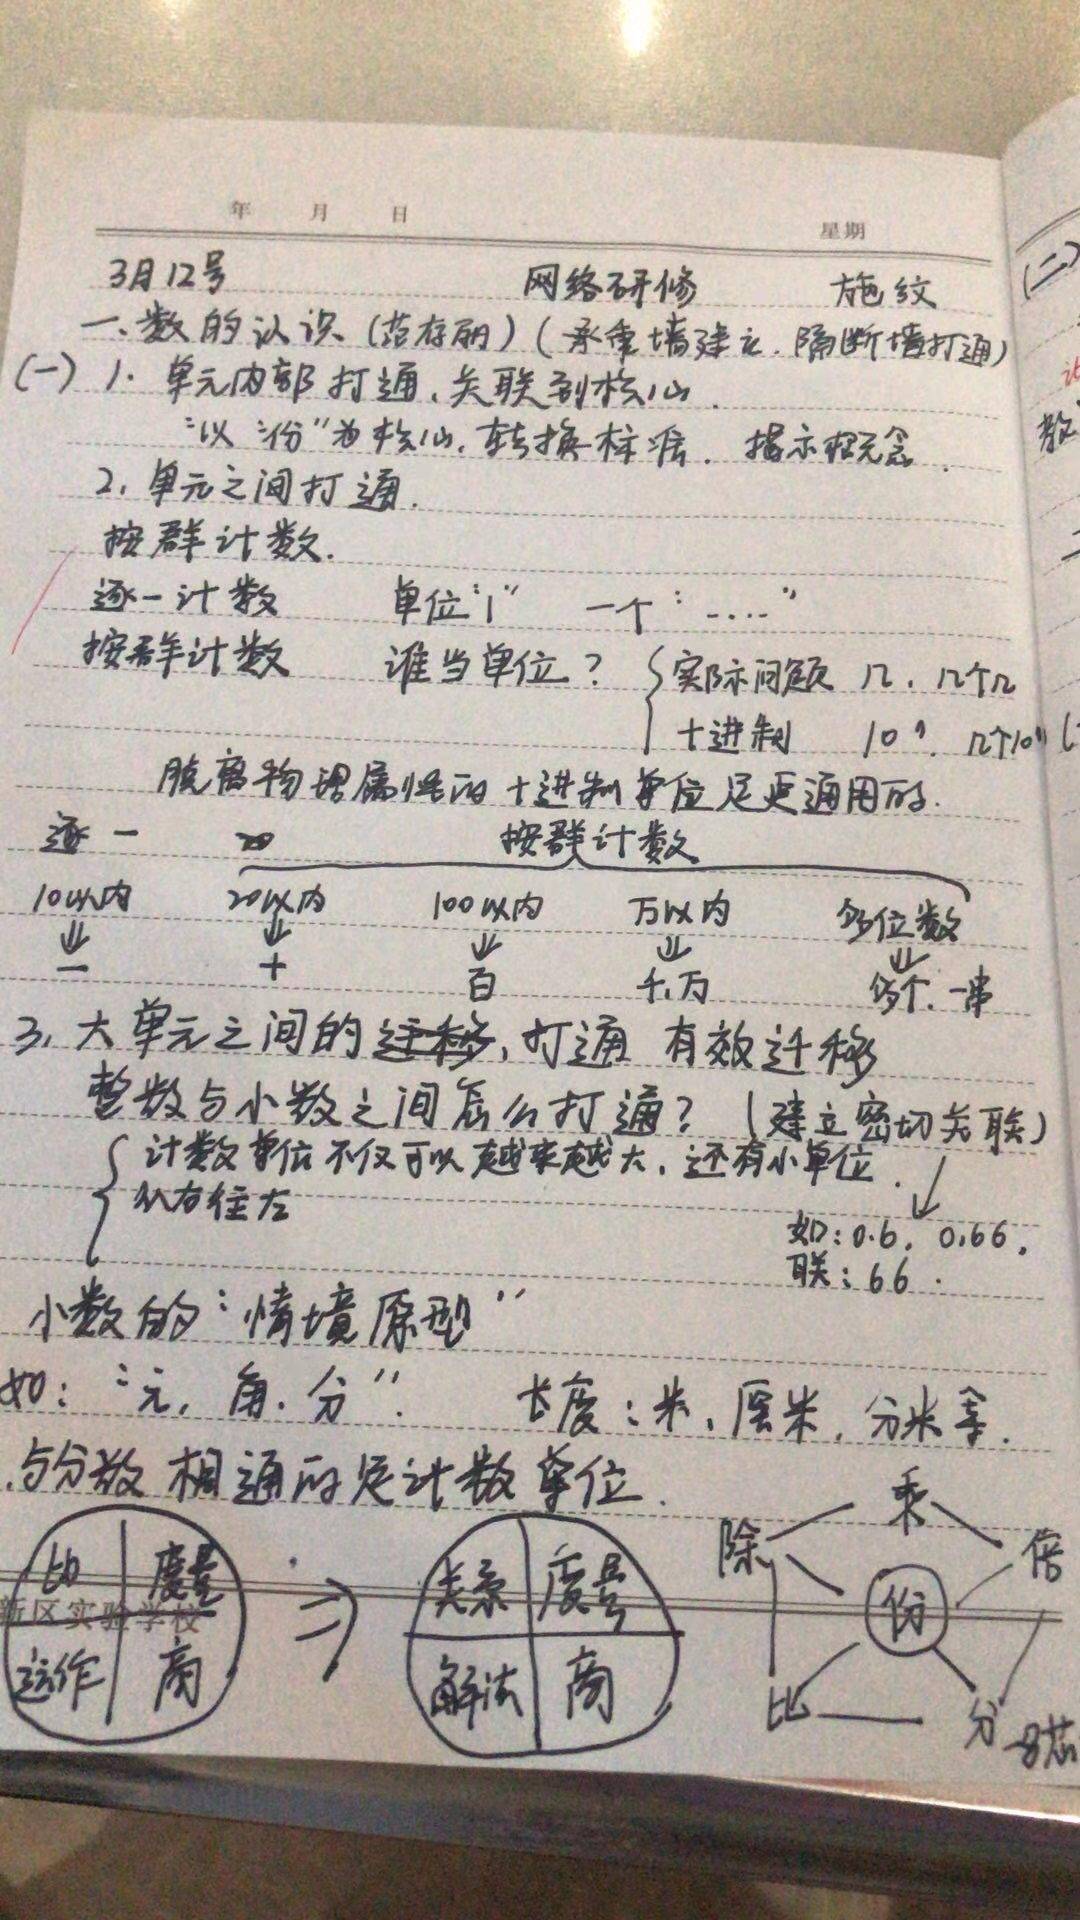 年 月 日 星期
3月12号 网络研修 施纹
一、数的认识(范存丽)(承重墙建立.隔断墙打通)
(一) 1. 单元内部打通、关联到核心.
"以"份"为核心.转换标准. 揭示概念.
2. 单元之间打通.
按群计数.
逐一计数 单位"1" 一个"....."
按群计数 谁当单位? 实际问题 几.几个几
十进制 10". 几个10"
脱离物理属性的十进制单位是更通用的.
逐一 按群计数
10以内 20以内 100以内 万以内 多位数
⇓ ⇓ ⇓ ⇓ ⇓
一 十 百 千、万 多个.一串
3. 大单元之间的迁移,打通 有效迁移
整数与小数之间怎么打通? (建立密切关联)
计数单位不仅可以越来越大.还有小单位.
从右往左
如:0.6. 0.66.
联:66.
小数的"情境原型"
如:"元.角.分". 长度:米、厘米.分米等.
与分数相通的是计数单位.
比 度量 ⇒ 关系 度量 除 乘 倍
运作 商 解法 商 份
新区实验学校
比 分